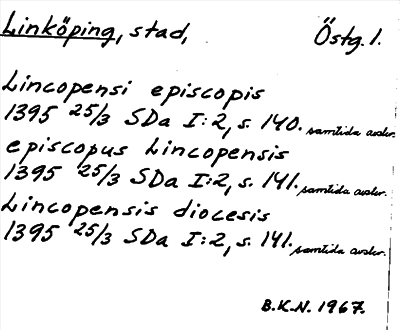 Linköping, stad, Östg. 1.
Lincopensi episcopis
1395 25/3 SDa I:2, s. 140. samtida avskr.
episcopus Lincopensis
1395 25/3 SDa I:2, s. 141. samtida avskr.
Lincopensis diocesis
1395 25/3 SDa I:2, s. 141. samtida avskr.
B.K.N. 1967.